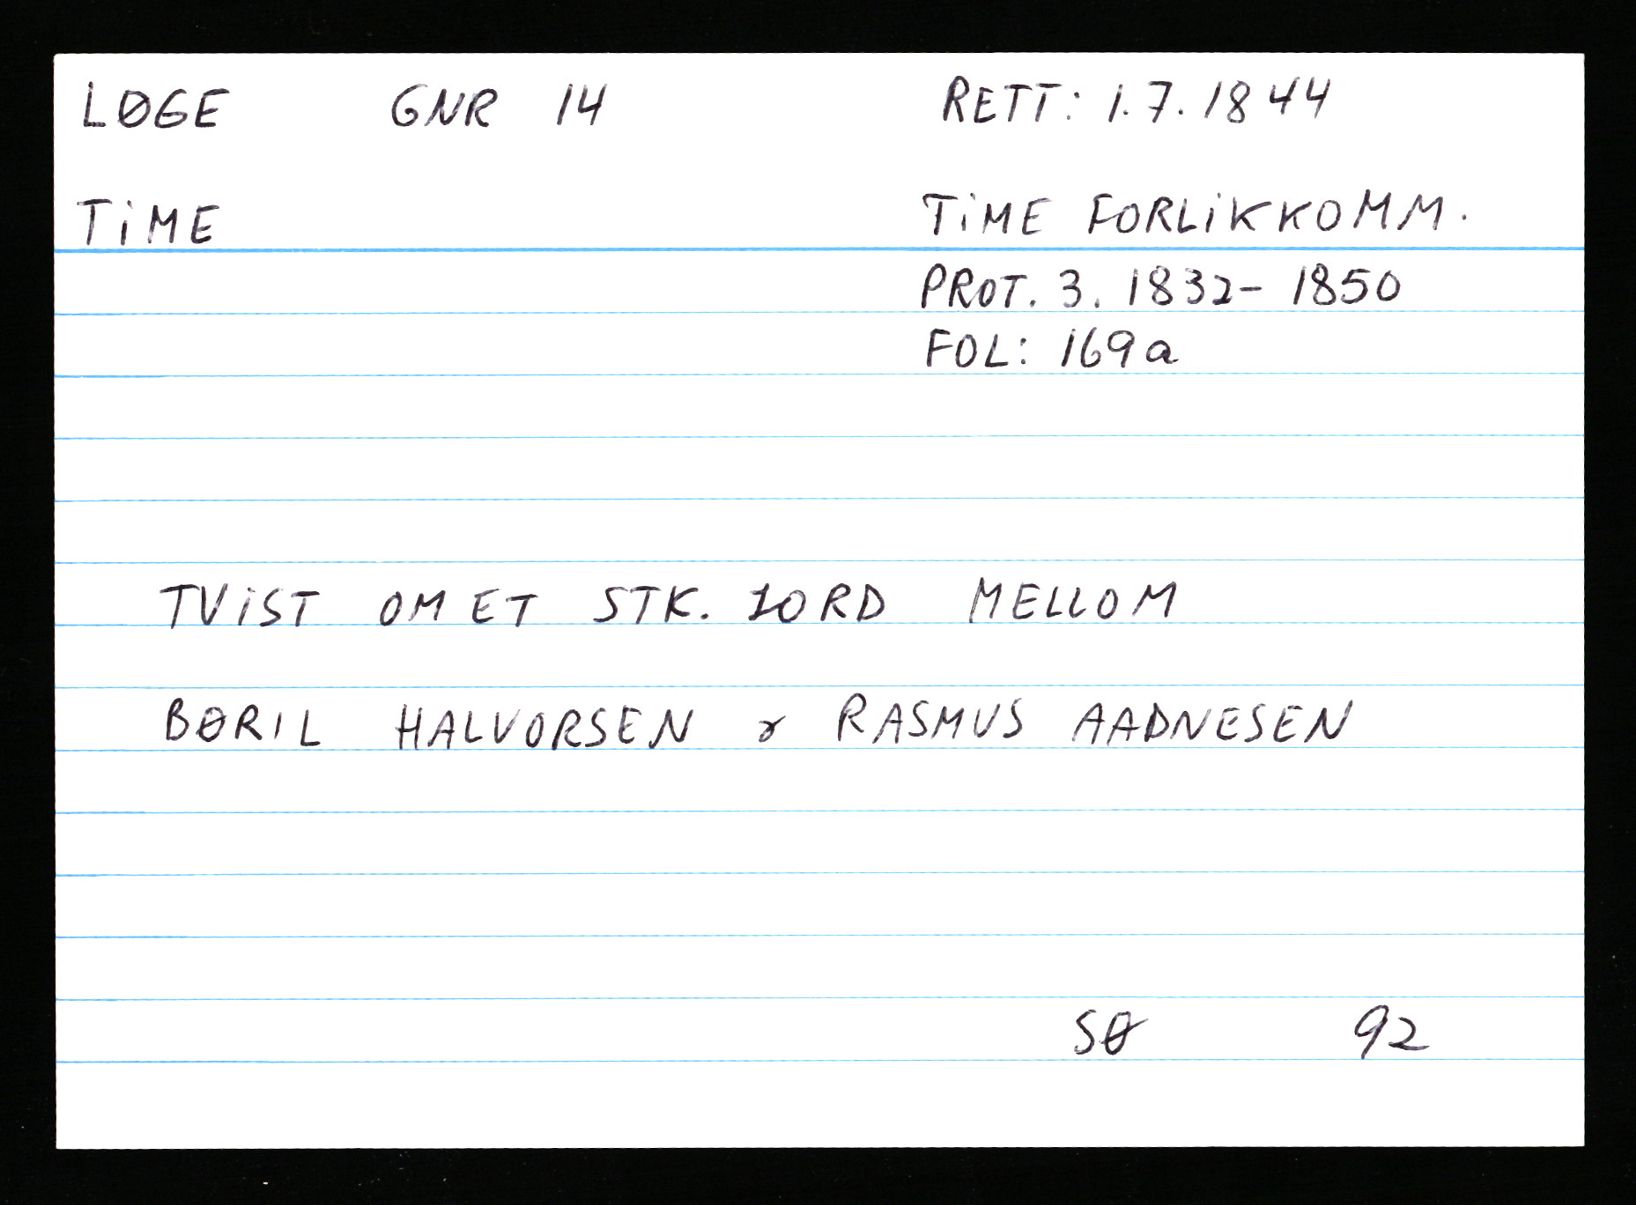 LØGE GNR 14 RETT: 1.7.1844
TIME TIME FORLIKKOMM.
PROT. 3. 1832-1850
FOL: 169a
TVIST OM ET STK. JORD MELLOM
BØRIL HALVORSEN & RASMUS AADNESEN
SØ 92